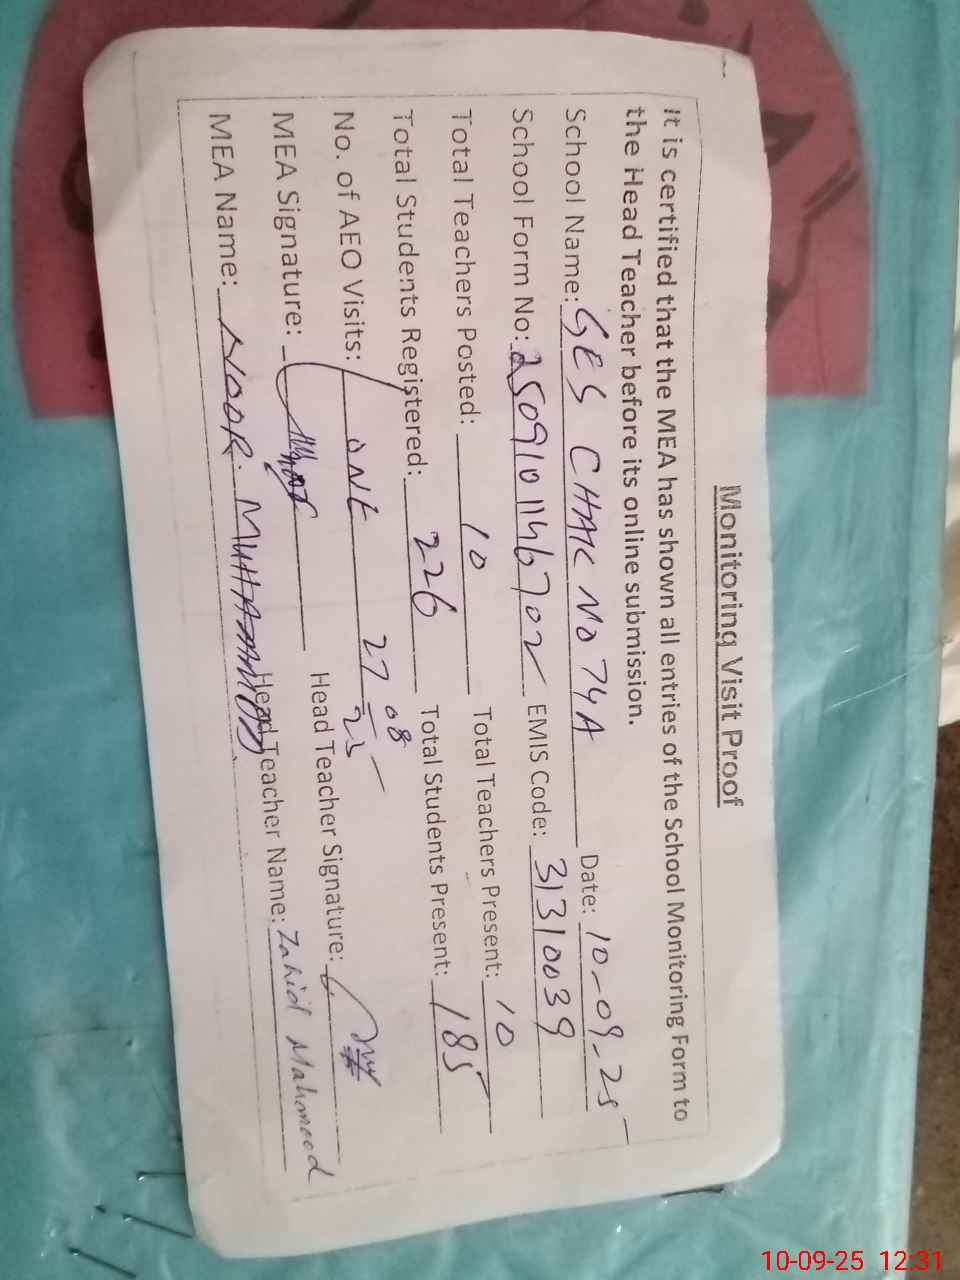 Monitoring Visit Proof
It is certified that the MEA has shown all entries of the School Monitoring Form to
the Head Teacher before its online submission.
School Name: GES CHAK NO 74A Date: 10-09-25
School Form No: 2509101146702 EMIS Code: 31310039
Total Teachers Posted: 10 Total Teachers Present: 10
Total Students Registered: 226 Total Students Present: 185
No. of AEO Visits: ONE 27 08 25
MEA Signature: Head Teacher Signature:
MEA Name: NOOR MUHAMMAD Head Teacher Name: Zahid Mahmood
10-09-25 12:31